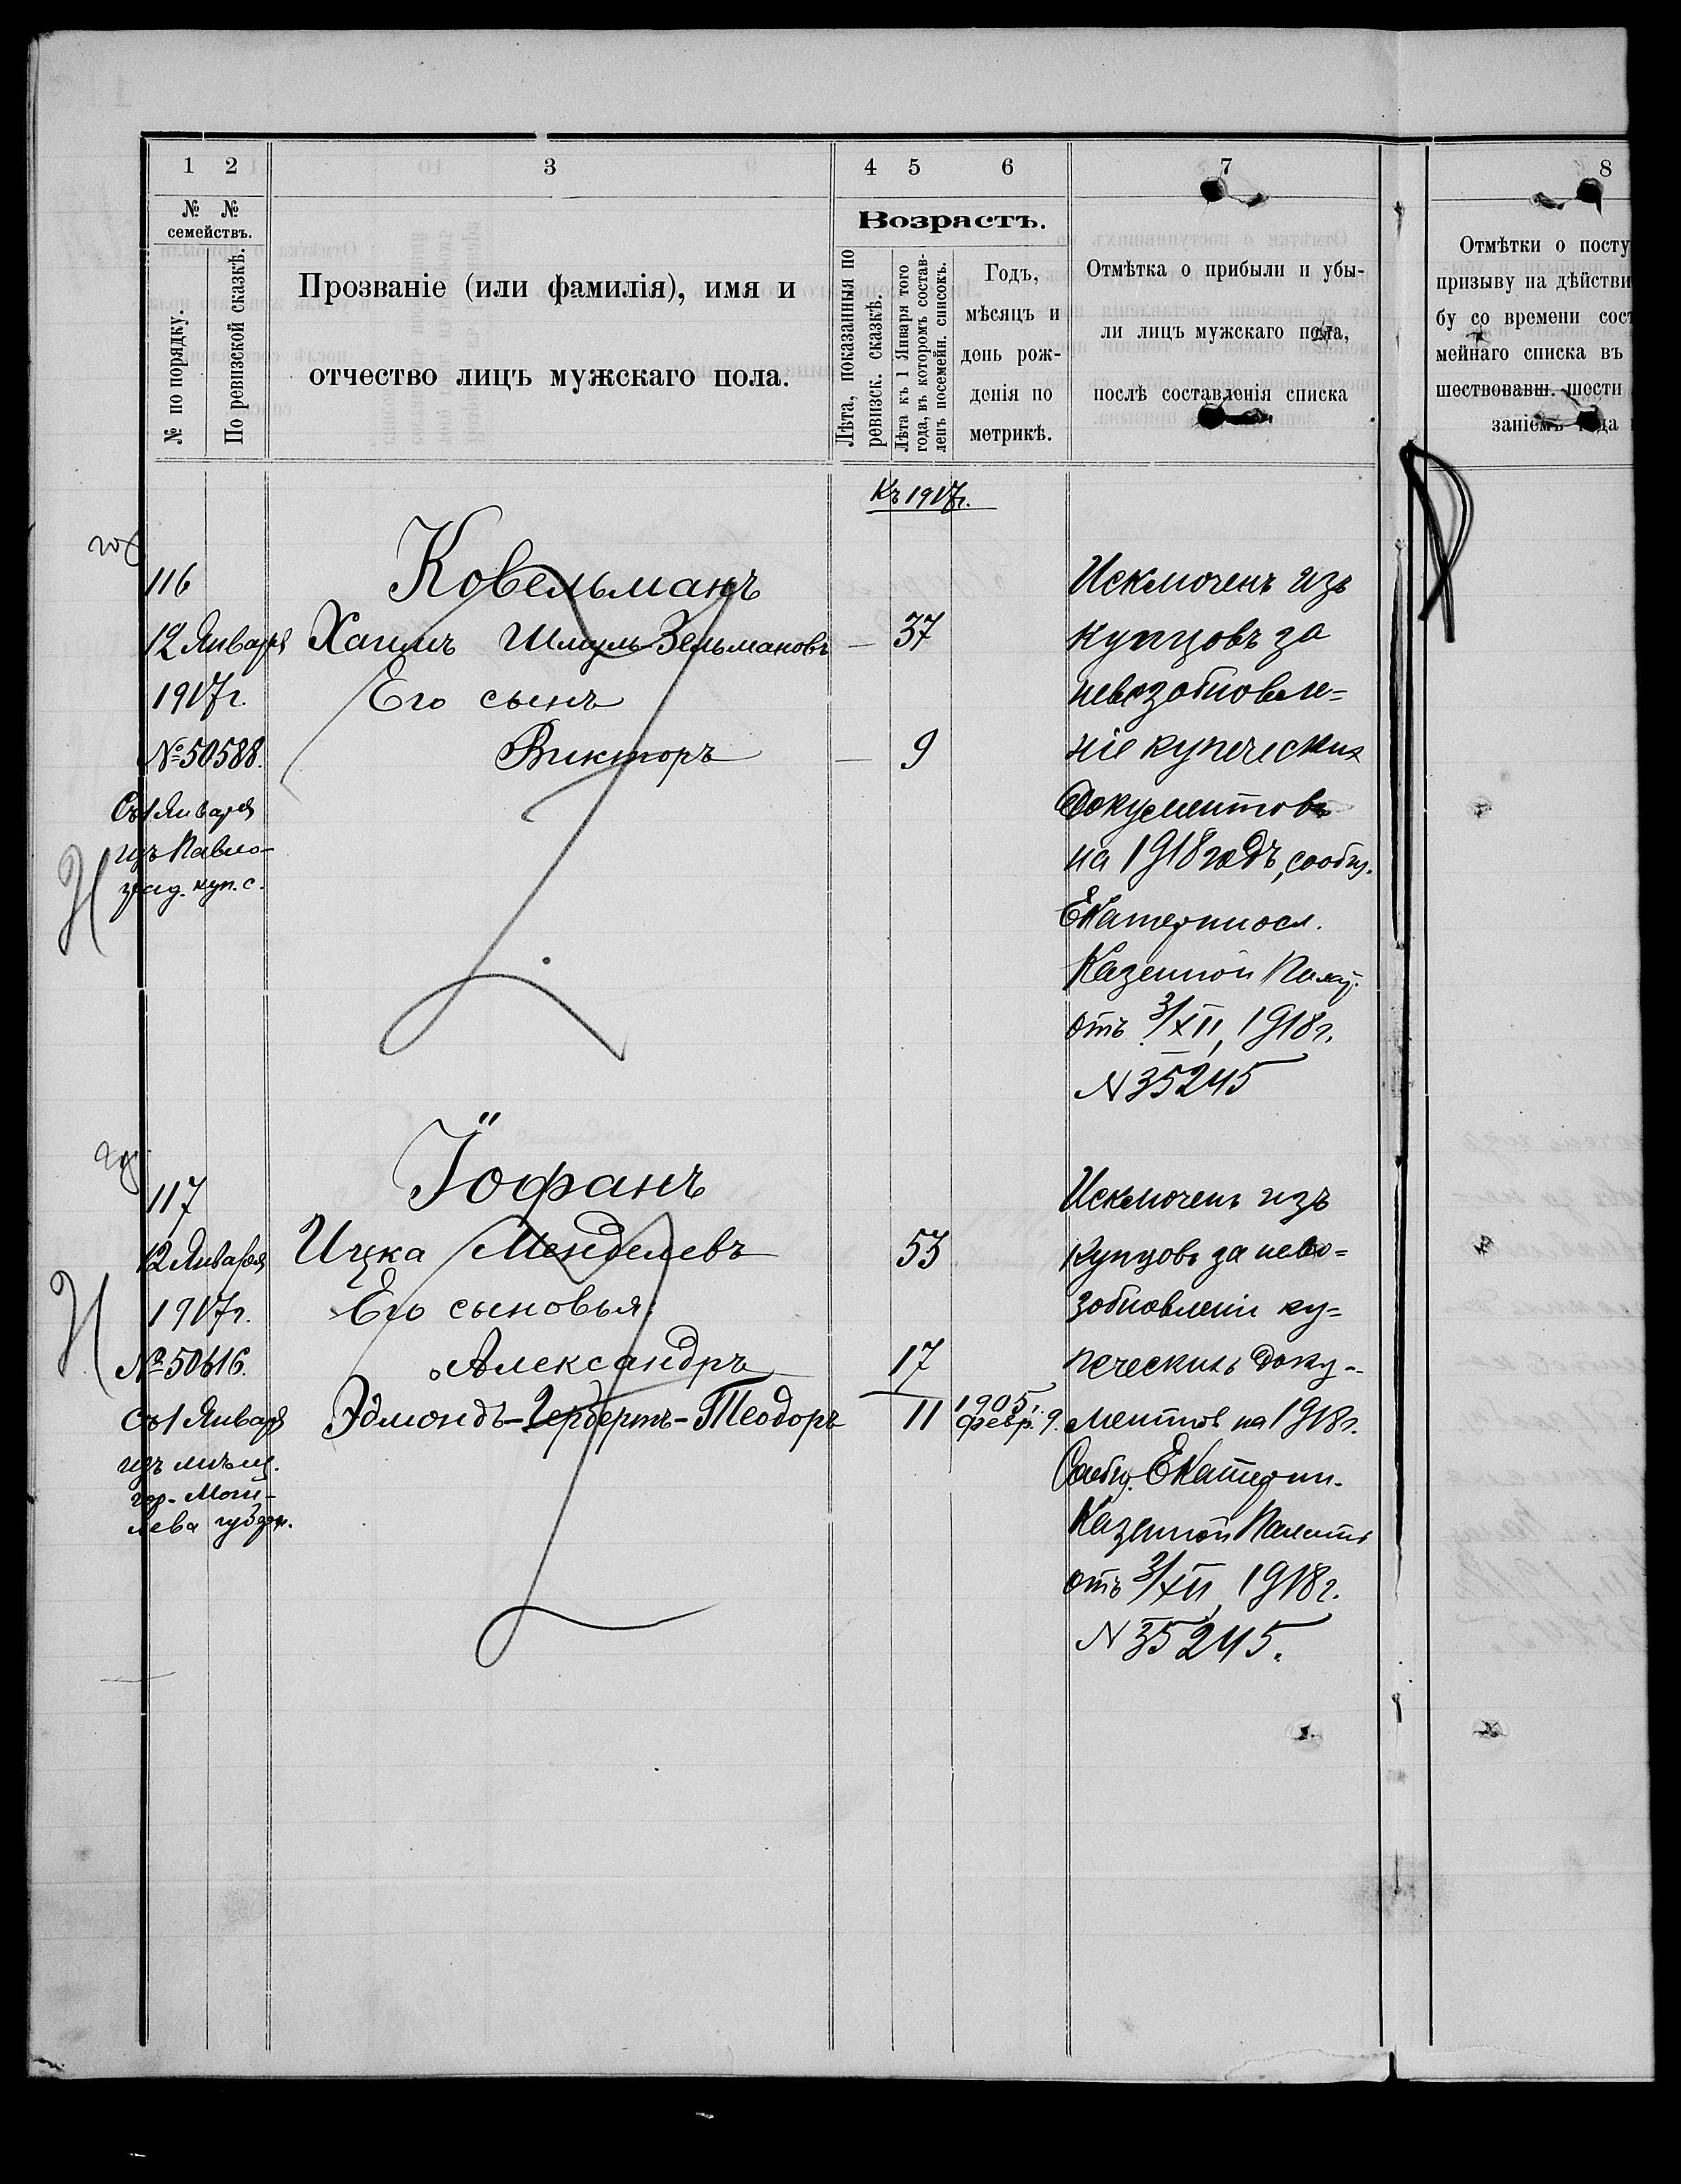 1 2 3 4 5 6 7 8
№ № семействъ.
№ по порядку.
По ревизской сказкѣ.
Прозваніе (или фамилія), имя и
отчество лицъ мужскаго пола.
Возрастъ.
Лѣта, показанныя по
ревизск. сказкѣ.
Лѣта къ 1 Января того
года, въ которомъ состав-
ленъ посемейн. списокъ.
Годъ,
мѣсяцъ и
день рож-
денія по
метрикѣ.
Отмѣтка о прибыли и убы-
ли лицъ мужскаго пола,
послѣ составленія списка
Отмѣтки о посту
призыву на дѣйстви
бу со времени сост
мейнаго списка въ
шествовавш. шести
заніемъ года
Къ 1917г.
116
12 Января
1917г.
№ 50588.
Съ 1 Января
изъ Павло-
град. куп. с.
Ковельманъ
Хаимъ Шмуль-Зельмановъ — 37
Его сынъ
Викторъ — 9
Исключенъ изъ
купцовъ за
невозобновле=
ніе купеческихъ
документовъ
на 1918 годъ, сообщ.
Екатериносл.
Казенной Палат.
отъ 3/XII, 1918г.
N 35245
117
12 Января
1917г.
№ 50616.
Съ 1 Января
изъ мѣщ.
гор. Моги-
лева губерн.
Іофанъ
Ицка Менделевъ 53
Его сыновья:
Александръ 17
Эдмондъ-Гербертъ-Теодоръ 11 1905г. Февр. 9.
Исключенъ изъ
купцовъ за нево=
зобновленіи ку=
печескихъ доку-
ментов на 1918г.
Сообщ. Екатерин.
Казенной Палаты
отъ 3/XII, 1918г.
N 35245.